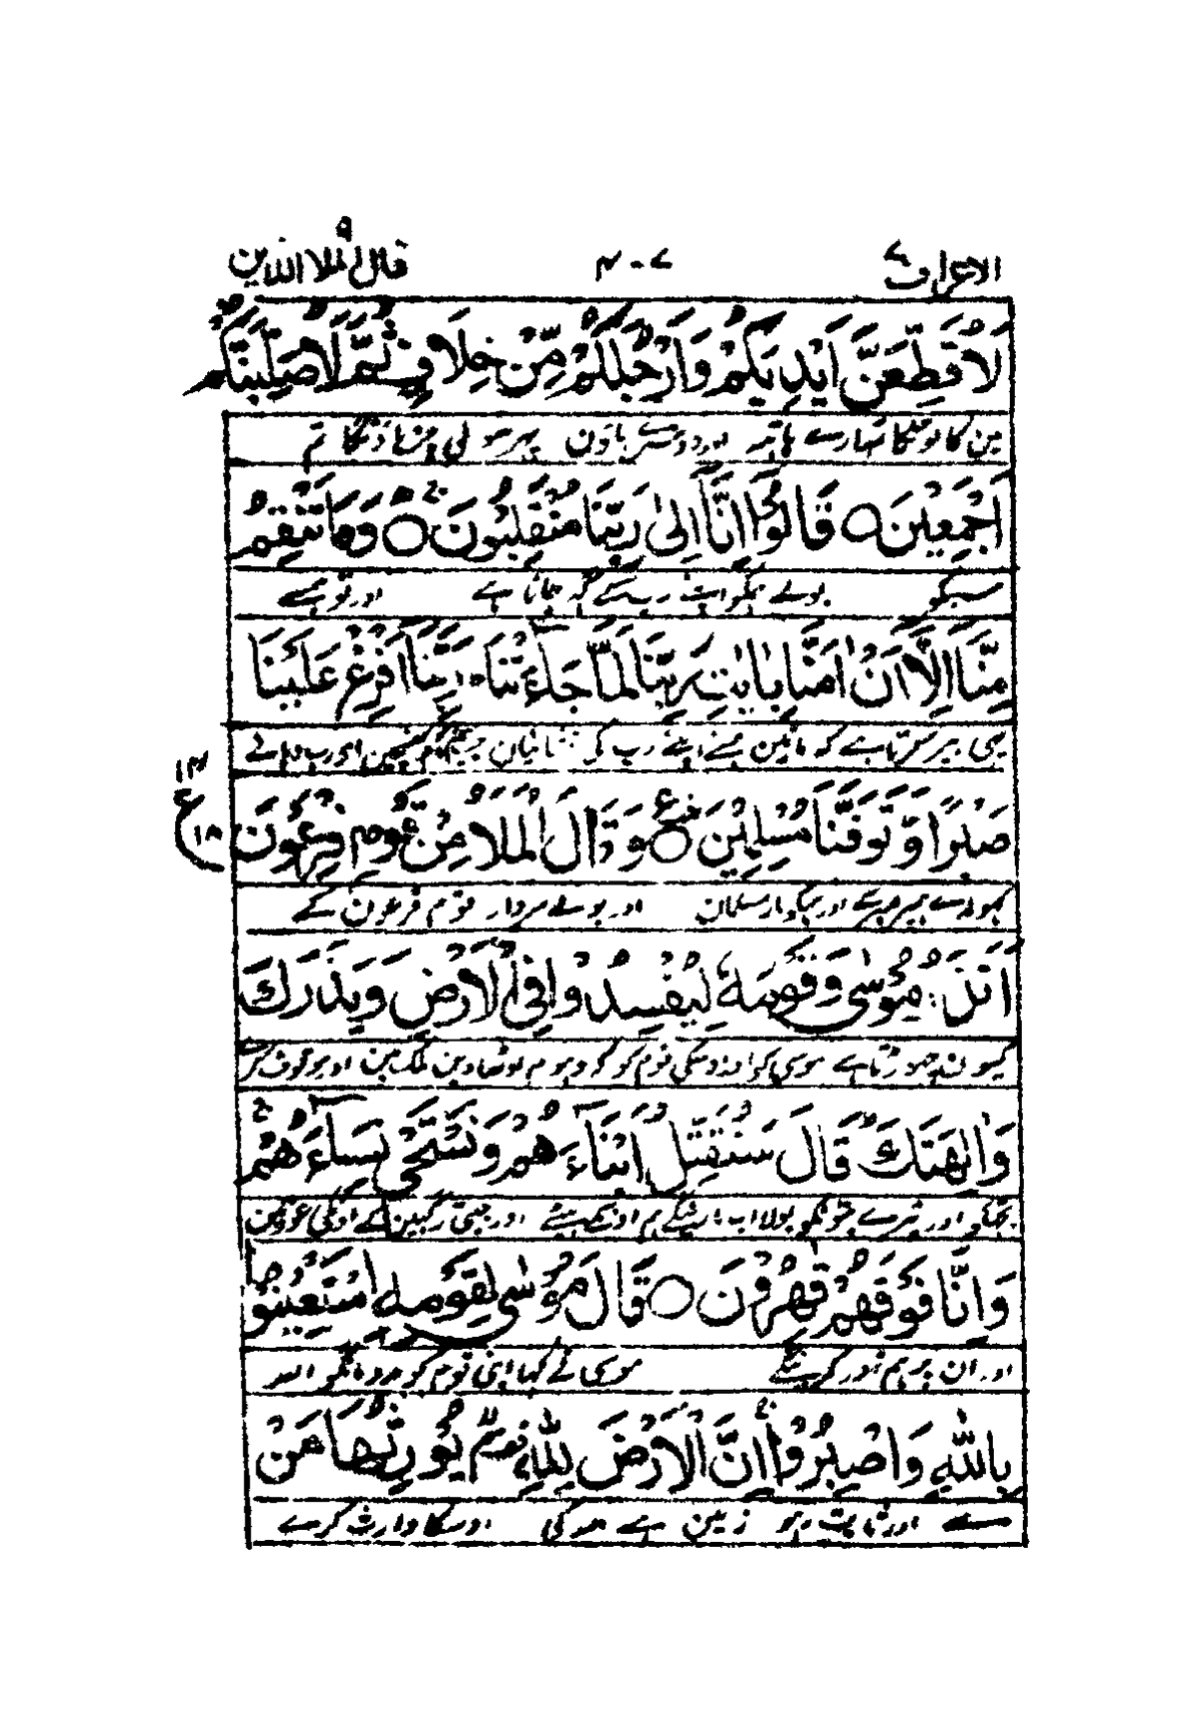 الاعراف ٧ ٢٠٧ قال الملا الذين ٩
لَاُقَطِّعَنَّ اَیْدِیَكُمْ وَاَرْجُلَكُمْ مِّنْ خِلَافٍ ثُمَّ لَاُصَلِّبَنَّكُمْ
مین کاٹونگا تمہارے ہاتھ اور دوسرے پاؤن پھر سولی چڑہاؤنگا تم
اَجْمَعِیْنَ ○ قَالُوْٓا اِنَّآ اِلٰی رَبِّنَا مُنْقَلِبُوْنَ ○ وَمَا تَنْقِمُ
سبکو بولے ہمکو اپنے رب کے طرف جانا ہے اور تو ہمسے
مِنَّآ اِلَّآ اَنْ اٰمَنَّا بِاٰیٰتِ رَبِّنَا لَمَّا جَآءَتْنَا رَبَّنَآ اَفْرِغْ عَلَیْنَا
یہی بیر کرتا ہے کہ مانین ہمنے اپنے رب کی نشانیان جب ہم تک پہنچین ای رب دہانے
صَبْرًا وَّتَوَفَّنَا مُسْلِمِیْنَ ○ وَقَالَ الْمَلَاُ مِنْ قَوْمِ فِرْعَوْنَ
١٤ ع ١٨
ہمپر صبر کے اور ہمکو مار مسلمان اور بولے سردار قوم فرعون کے
اَتَذَرُ مُوْسٰی وَقَوْمَهٗ لِیُفْسِدُوْا فِی الْاَرْضِ وَیَذَرَكَ
کیون چہوڑتا ہے موسی کو اور اوسکی قوم کو کہ دہوم اوٹھاوین ملک مین اور موقوف کرے
وَاٰلِهَتَكَ قَالَ سَنُقَتِّلُ اَبْنَآءَهُمْ وَنَسْتَحْیٖ نِسَآءَهُمْ
تجکو اور تیرے بتونکو بولا اب مارینگے ہم اونکے بیٹے اور جیتی رکہین گے اونکی عورتین
وَاِنَّا فَوْقَهُمْ قٰهِرُوْنَ ○ قَالَ مُوْسٰی لِقَوْمِهِ اسْتَعِیْنُوْا
اور ان پر ہم زور کرینگے موسی نے کہا اپنی قوم کو مدد مانگو اللہ
بِاللّٰهِ وَاصْبِرُوْا اِنَّ الْاَرْضَ لِلّٰهِ یُوْرِثُهَا مَنْ
سے اور ثابت رہو زمین ہے اللہ کی اوسکا وارث کرے